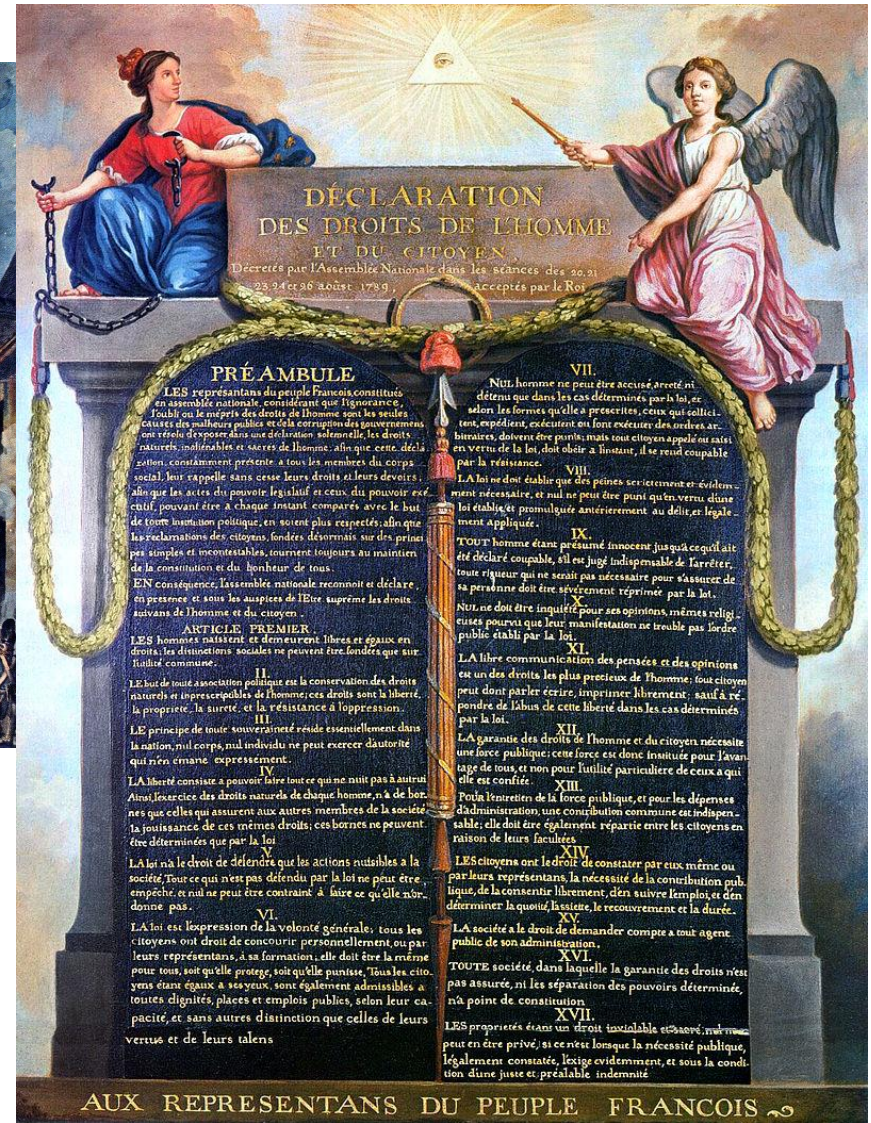 DÉCLARATION
DES DROITS DE L'HOMME
ET DU CITOYEN
Décretés par l'Assemblée Nationale dans les séances des 20.21
23.24 et 26 aoûst 1789, acceptés par le Roi
PRÉAMBULE
LES représantans du peuple Francois, constitués
en assemblée nationale, considérant que l'ignorance,
l'oubli ou le mépris des droits de l'homme sont les seules
causes des malheurs publics et de la corruption des gouvernemens
ont résolu d'exposer, dans une déclaration solemnelle, les droits
naturels, inaliénables et sacrés de l'homme; afin que cette décla
ration, constamment présente a tous les membres du corps
social, leur rappelle sans cesse leurs droits et leurs devoirs,
afin que les actes du pouvoir législatif et ceux du pouvoir exé
cutif, pouvant être a chaque instant comparés avec le but
de toute institution politique, en soient plus respectés; afin que
les reclamations des citoyens, fondées désormais sur des princi
pes simples et incontestables, tournent toujours au maintien
de la constitution et du bonheur de tous.
EN conséquence, l'assemblée nationale reconnoit et déclare,
en presence et sous les auspices de l'Etre suprême les droits
suivans de l'homme et du citoyen.
ARTICLE PREMIER.
LES hommes naissent et demeurent libres et égaux en
droits; les distinctions sociales ne peuvent être fondées que sur
l'utilité commune.
II.
LE but de toute association politique est la conservation des droits
naturels et inprescriptibles de l'homme; ces droits sont la liberté,
la propriete, la sureté, et la résistance à l'oppression.
III.
LE principe de toute souveraineté réside essentiellement dans
la nation, nul corps, nul individu ne peut exercer d'autorité
qui n'en émane expressement.
IV.
LA liberté consiste a pouvoir faire tout ce qui ne nuit pas à autrui
Ainsi, l'exercice des droits naturels de chaque homme, n'a de bor-
nes que celles qui assurent aux autres membres de la société
la jouissance de ces mêmes droits; ces bornes ne peuvent
être déterminées que par la loi
V.
LA loi n'a le droit de défendre que les actions nuisibles a la
société, Tout ce qui n'est pas défendu par la loi ne peut être
empêché, et nul ne peut être contraint à faire ce qu'elle n'or-
donne pas.
VI.
LA loi est l'expression de la volonté générale; tous les
citoyens ont droit de concourir personnellement, ou par
leurs représentans, a sa formation; elle doit être la même
pour tous, soit qu'elle protege, soit qu'elle punisse, Tous les cito-
yens étant égaux a ses yeux, sont également admissibles a
toutes dignités, places et emplois publics, selon leur ca-
pacité, et sans autres distinction que celles de leurs
vertus et de leurs talens
VII.
NUL homme ne peut être accusé, arreté, ni
détenu que dans les cas déterminés par la loi, et
selon les formes qu'elle a prescrites, ceux qui sollici-
tent, expédient, exécutent ou font exécuter des ordres ar-
bitraires, doivent être punis; mais tout citoyen appelé ou saisi
en vertu de la loi, doit obéir a l'instant, il se rend coupable
par la résistance.
VIII.
LA loi ne doit établir que des peines strictement et évidem-
ment nécessaire, et nul ne peut être puni qu'en vertu d'une
loi établie et promulguée antérierement au délit, et légale-
ment appliquée.
IX.
TOUT homme étant présumé innocent jusqu'a ce qu'il ait
été déclaré coupable, s'il est jugé indispensable de l'arrêter,
toute rigueur qui ne serait pas nécessaire pour s'assurer de
sa personne doit être sévèrement réprimée par la loi.
X.
NUL ne doit être inquiété pour ses opinions, mêmes religi-
euses pourvu que leur manifestation ne trouble pas l'ordre
public établi par la loi.
XI.
LA libre communication des pensées et des opinions
est un des droits les plus precieux de l'homme; tout citoyen
peut dont parler écrire, imprimer librement; sauf à ré-
pondre de l'abus de cette liberté dans les cas déterminés
par la loi.
XII.
LA garantie des droits de l'homme et du citoyen nécessite
une force publique; cette force est donc instituée pour l'avan-
tage de tous, et non pour l'utilité particuliere de ceux a qui
elle est confiée.
XIII.
POUR l'entretien de la force publique, et pour les dépenses
d'administration, une contribution commune est indispen-
sable; elle doit être également répartie entre les citoyens en
raison de leurs facultées
XIV.
LES citoyens ont le droit de constater par eux même ou
par leurs représentans, la nécessité de la contribution pub-
lique, de la consentir librement, d'en suivre l'emploi, et d'en
déterminer la quotité, l'assiette, le recouvrement et la durée.
XV.
LA société a le droit de demander compte a tout agent
public de son administration.
XVI.
TOUTE société, dans laquelle la garantie des droits n'est
pas assurée, ni les séparation des pouvoirs déterminée,
n'a point de constitution
XVII.
LES proprietés étant un droit inviolable et sacré, nul ne
peut en être privé, si ce n'est lorsque la nécessité publique,
légalement constatée, l'exige evidemment, et sous la condi-
tion d'une juste et préalable indemnité
AUX REPRESENTANS DU PEUPLE FRANCOIS